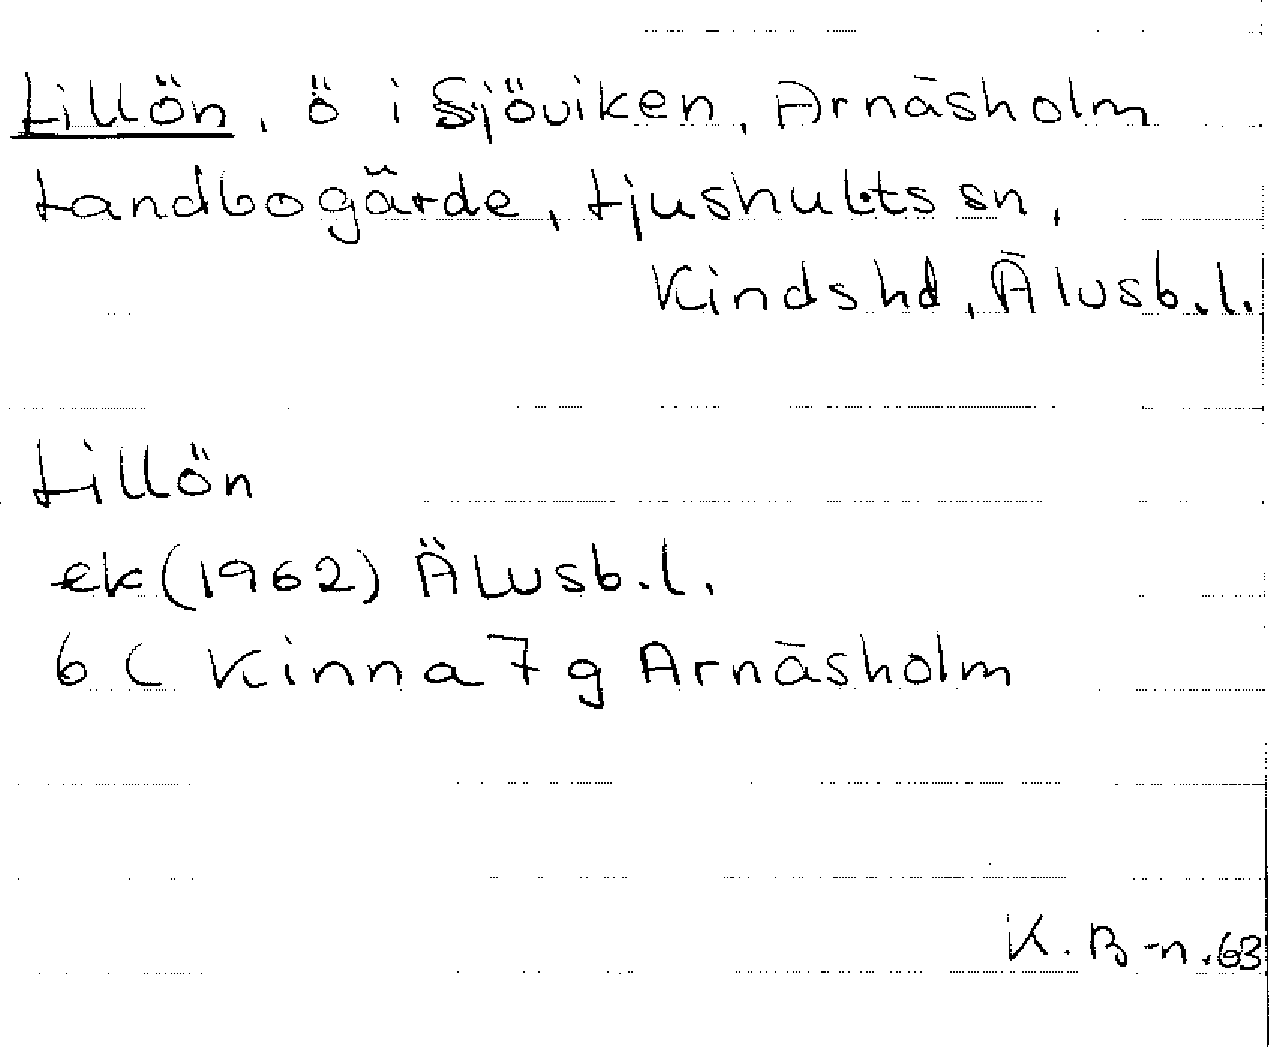 Lillön, ö i Sjöviken, Arnäsholm
Landbogärde, Ljushults sn,
Kinds hd, Älvsb.l.
Lillön
ek (1962) Älvsb.l.
6 C Kinna 7 g Arnäsholm
K. B-n. 63